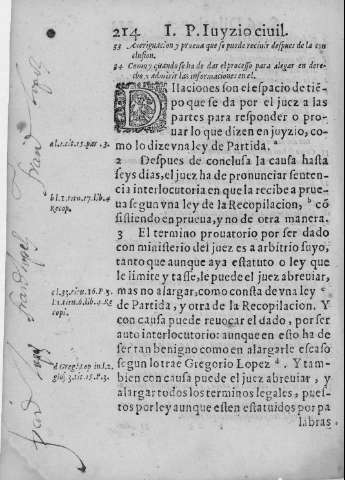 214. I. P. Iuyzio ciuil.
33 Auerignacion y prueua que se puede reciuir despues de la con
clusion.
34 Como y quando se ha de dar el processo para alegar en dere
cho, y admitir las informaciones en el.
DIlaciones son el espacio de tiē
po que se da por el juez a las
partes para responder o pro-
uar lo que dizen en joyzio, co-
mo lo dize vna ley de Partida. a
a l.1.tit.15.par.3.
2 Despues de conclusa la causa hasta
seys dias, el juez ha de pronunciar senten-
cia interlocutoria en que la recibe a prue-
ua segun vna ley de la Recopilacion, b cō
b l.2.titu.17.lib.4
Recop.
sistiendo en prueua, y no de otra manera.
3 El termino prouatorio por ser dado
con ministerio del juez es a arbitrio suyo,
tanto que aunque aya estatuto o ley que
le limite y tasse, le puede el juez abreuiar,
mas no alargar, como consta de vna ley c
c l.33.titu.16.P.3.
l.1.titu.6.lib.4.Re
copi.
de Partida, y otra de la Recopilacion. Y
con causa puede reuocar el dado, por ser
auto interlocutorio: aunque en esto ha de
ser tan benigno como en alargarle escaso
segun lo trae Gregorio Lopez d. Y tam-
d Grego.Lop in l.2.
glos.3.tit.15.P.3.
bien con causa puede el juez abreuiar, y
alargar todos los terminos legales, pues-
tos por ley aunque esten estatuidos por pa
labras